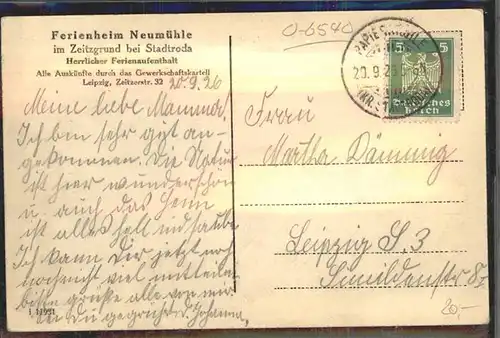 Ferienheim Neumühle
im Zeitzgrund bei Stadtroda
Herrlicher Ferienaufenthalt
Alle Auskünfte durch das Gewerkschaftskartell
Leipzig, Zeitzerstr. 32
20.9.26
Meine liebe Mamma!
Ich bin sehr gut an-
gekommen. Die Natur
ist hier wunderschön
u. auch das Heim
ist alles hell und sauber.
Ich kann Dir jetzt noch
noch nicht viel mitteilen
bitte grüße alle von mir
sei Du gegrüßt d. Johanna.
1 11951
0-6540
PAPIERMÜHLE
20.9.26
5 5
Deutsches
Reich
Frau
Martha Dämmig
Leipzig S. 3
20,-